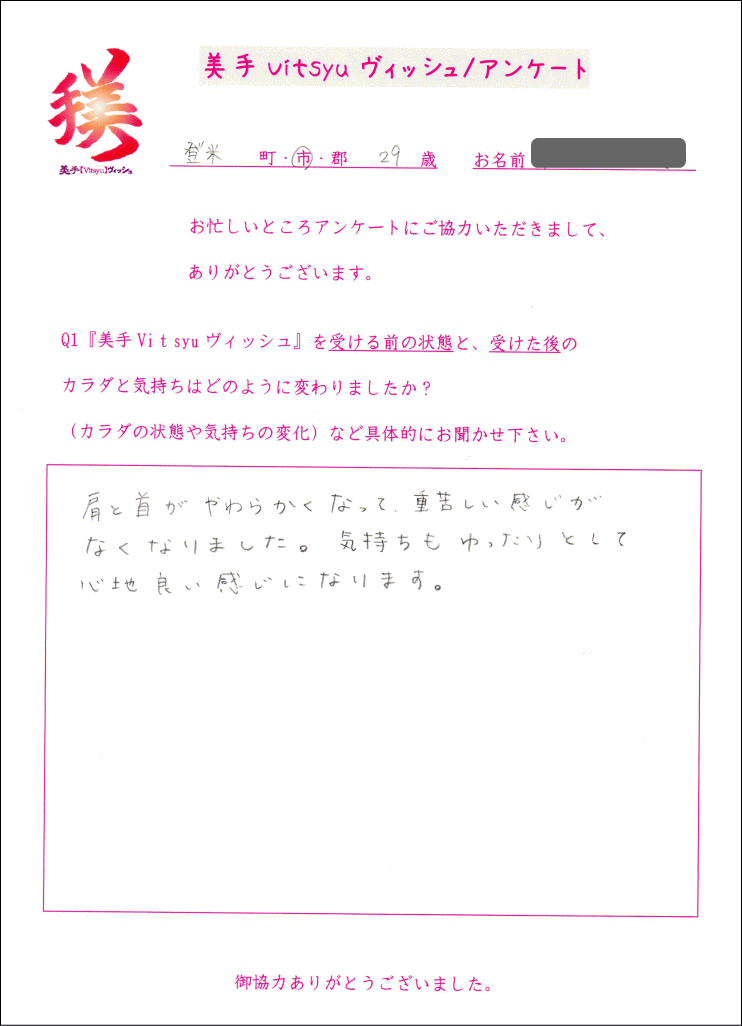 美手 vitsyu ヴィッシュ/アンケート
美手【Vitsyu】ヴィッシュ
登米 町・市・郡 29 歳 お名前
お忙しいところアンケートにご協力いただきまして、
ありがとうございます。
Q1『美手Vitsyuヴィッシュ』を受ける前の状態と、受けた後の
カラダと気持ちはどのように変わりましたか？
（カラダの状態や気持ちの変化）など具体的にお聞かせ下さい。
肩と首がやわらかくなって、重苦しい感じが
なくなりました。気持ちもゆったりとして
心地良い感じになります。
御協力ありがとうございました。